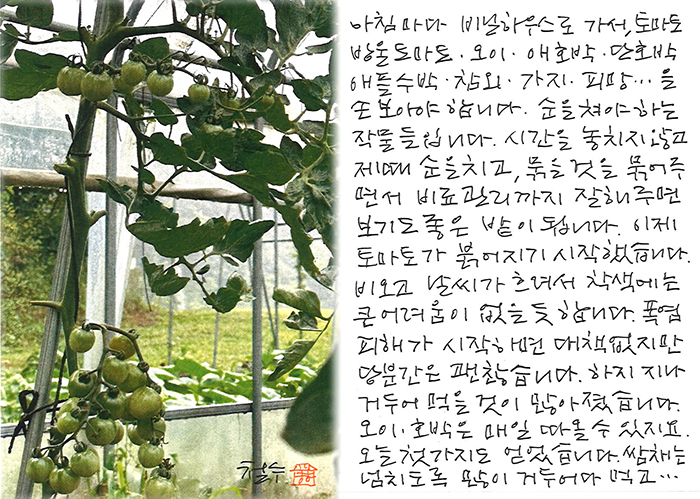 아침마다 비닐하우스로 가서, 토마토
방울토마토·오이·애호박·단호박
애플수박·참외·가지·피망…을
손보아야 합니다. 순을 쳐야하는
작물들입니다. 시간을 놓치지 않고
제때 순을 치고, 묶을 것을 묶어주
면서 비료관리까지 잘해주면
보기도 좋은 밭이 됩니다. 이제
토마토가 붉어지기 시작했습니다.
비오고 날씨가 흐려서 착색에는
큰 어려움이 없을 듯 합니다. 폭염
피해가 시작하면 대책없지만
당분간은 괜찮습니다. 하지 지나
거두어 먹을 것이 많아졌습니다.
오이·호박은 매일 따올 수 있지요.
오늘 첫 가지도 얻었습니다. 쌈채는
넘치도록 많이 거두어다 먹고…
철수